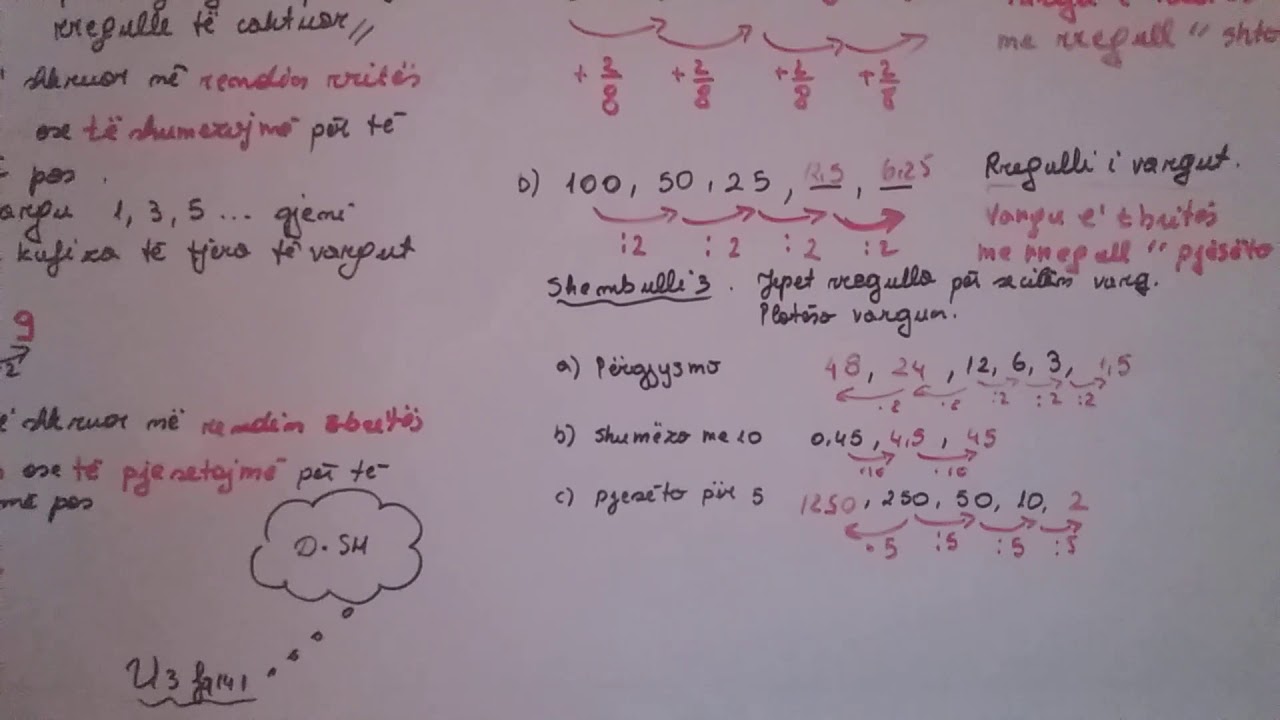 rregulle të caktuar,,
shkruar më rendin rritës
ose të shumezojmë për të
pas.
1, 3, 5 ... gjeni
kufiza të tjera të vargut
9
shkruar më rendin zbritës
ose të pjesetojmë për të
më pas
D. SH
U3 fq 141
+ 2/8 + 2/8 + 2/8 + 2/8
me rregull " shto
b) 100, 50, 25, 12,5, 6,25
:2 :2 :2 :2
Rregulli i vargut.
Vargu ë zbritës
me rregull " pjesëto
Shembulli 3. Jepet rregulla për secilin varg.
Plotëso vargun.
a) Përgjysmo 48, 24, 12, 6, 3, 1,5
·2 ·2 :2 :2 :2
b) Shumëzo me 10 0,45, 4,5, 45
·10 ·10
c) Pjesëto për 5 1250, 250, 50, 10, 2
·5 :5 :5 :5